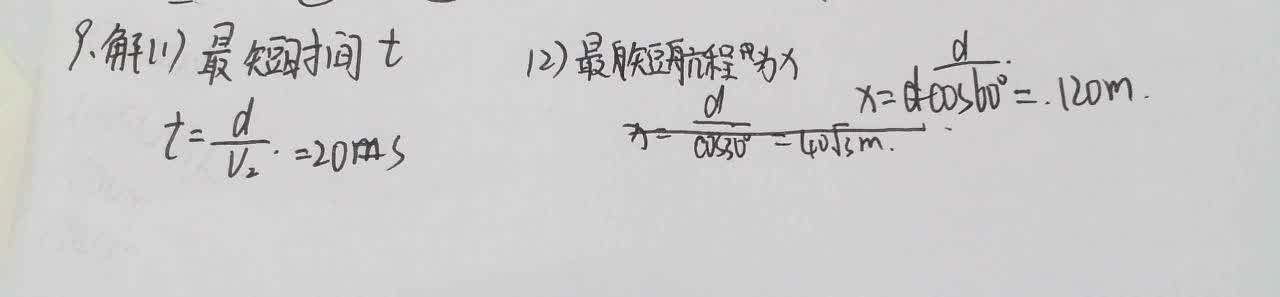 9.解(1)最短时间 t
t=d/V₂=20s
(2)最短航程为x
x=d/cos60°=120m.
x=d/cos30°=40√3m.